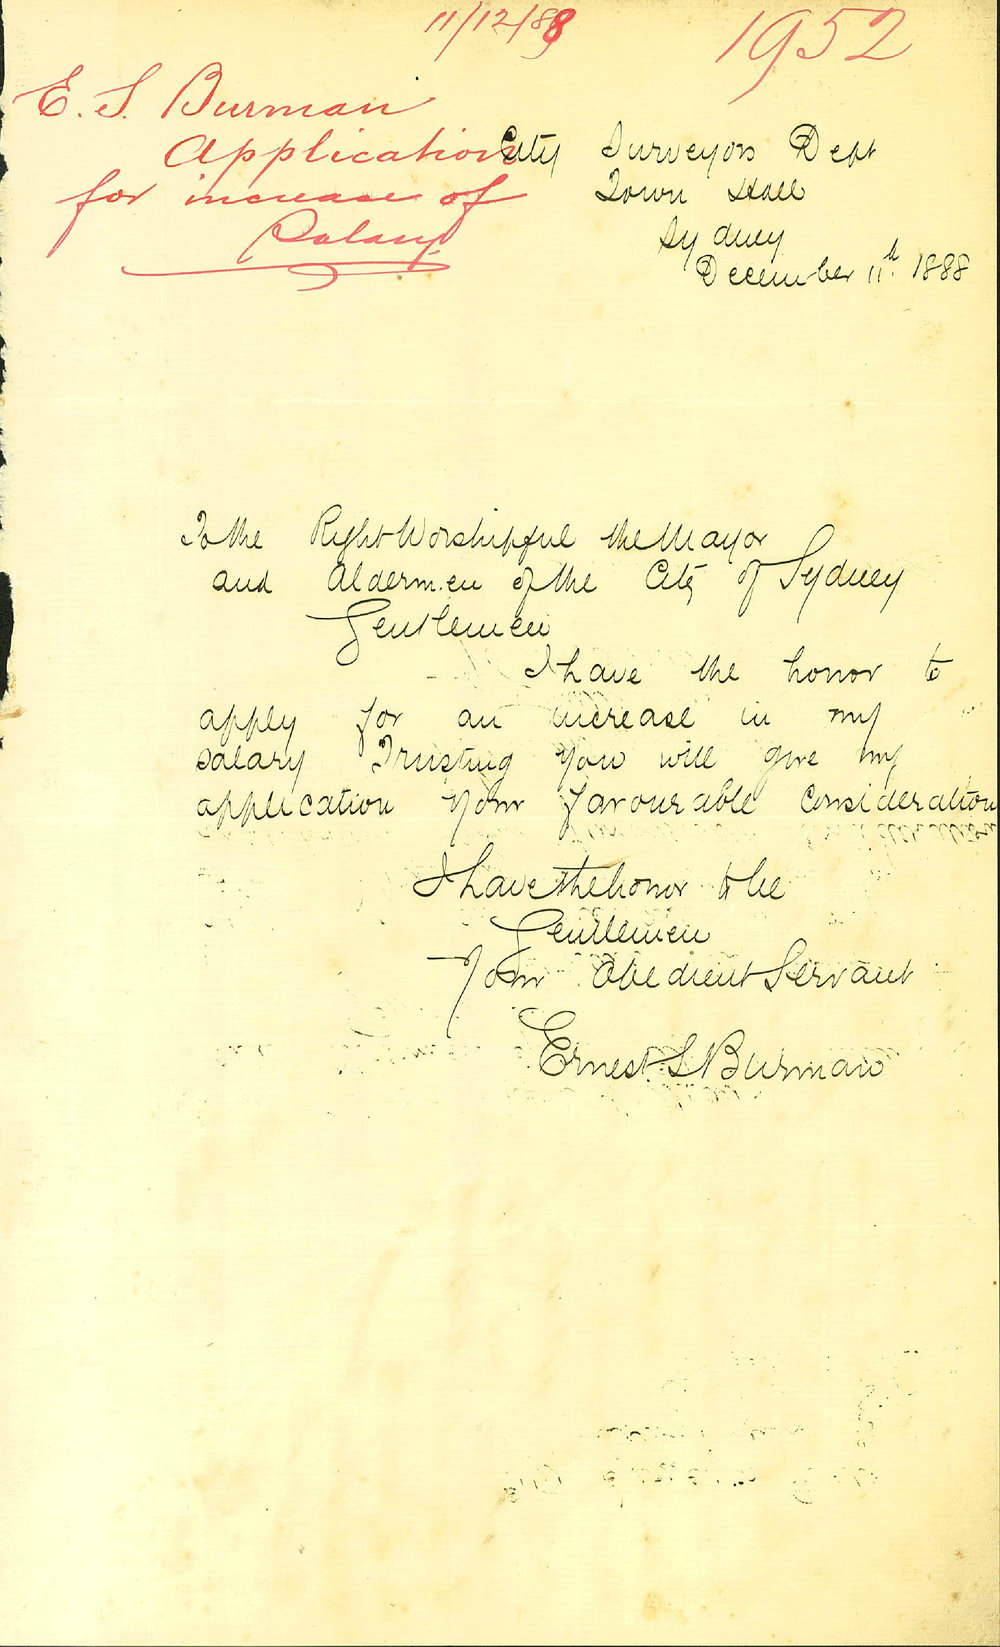 11/12/88
1952
E. S. Burman
Application
for increase of
Salary.
City Surveyors Dept
Town Hall
Sydney
December 11th 1888
To the Right Worshipful the Mayor
and Aldermen of the City of Sydney
Gentlemen
I have the honor to
apply for an increase in my
salary Trusting you will give my
application your favourable consideration
I have the honor to be
Gentlemen
Your Obedient Servant
Ernest S Burman